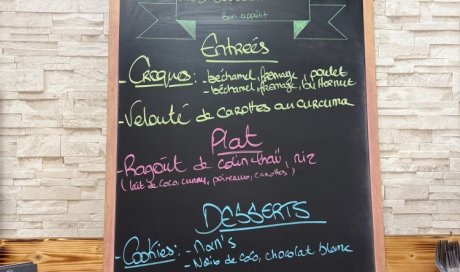 Bon appétit
Entrées
- Croques: - béchamel, fromage, poulet
- béchamel, fromage, butternut
- Velouté de carottes au curcuma
Plat
- Ragoût de colin-thaï, riz
(lait de coco, curry, poireaux, carottes)
DESSERTS
- Cookies: - M&M's
- Noix de coco, chocolat blanc